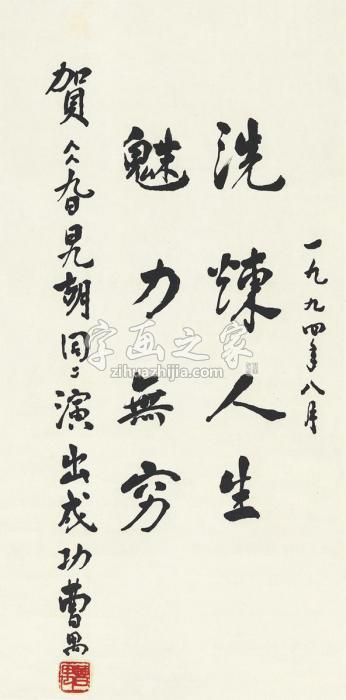 一九九四年八月
洗煉人生
魅力無穷
賀《旮旯胡同》演出成功曹禺
字画之家
www.zihuazhijia.com